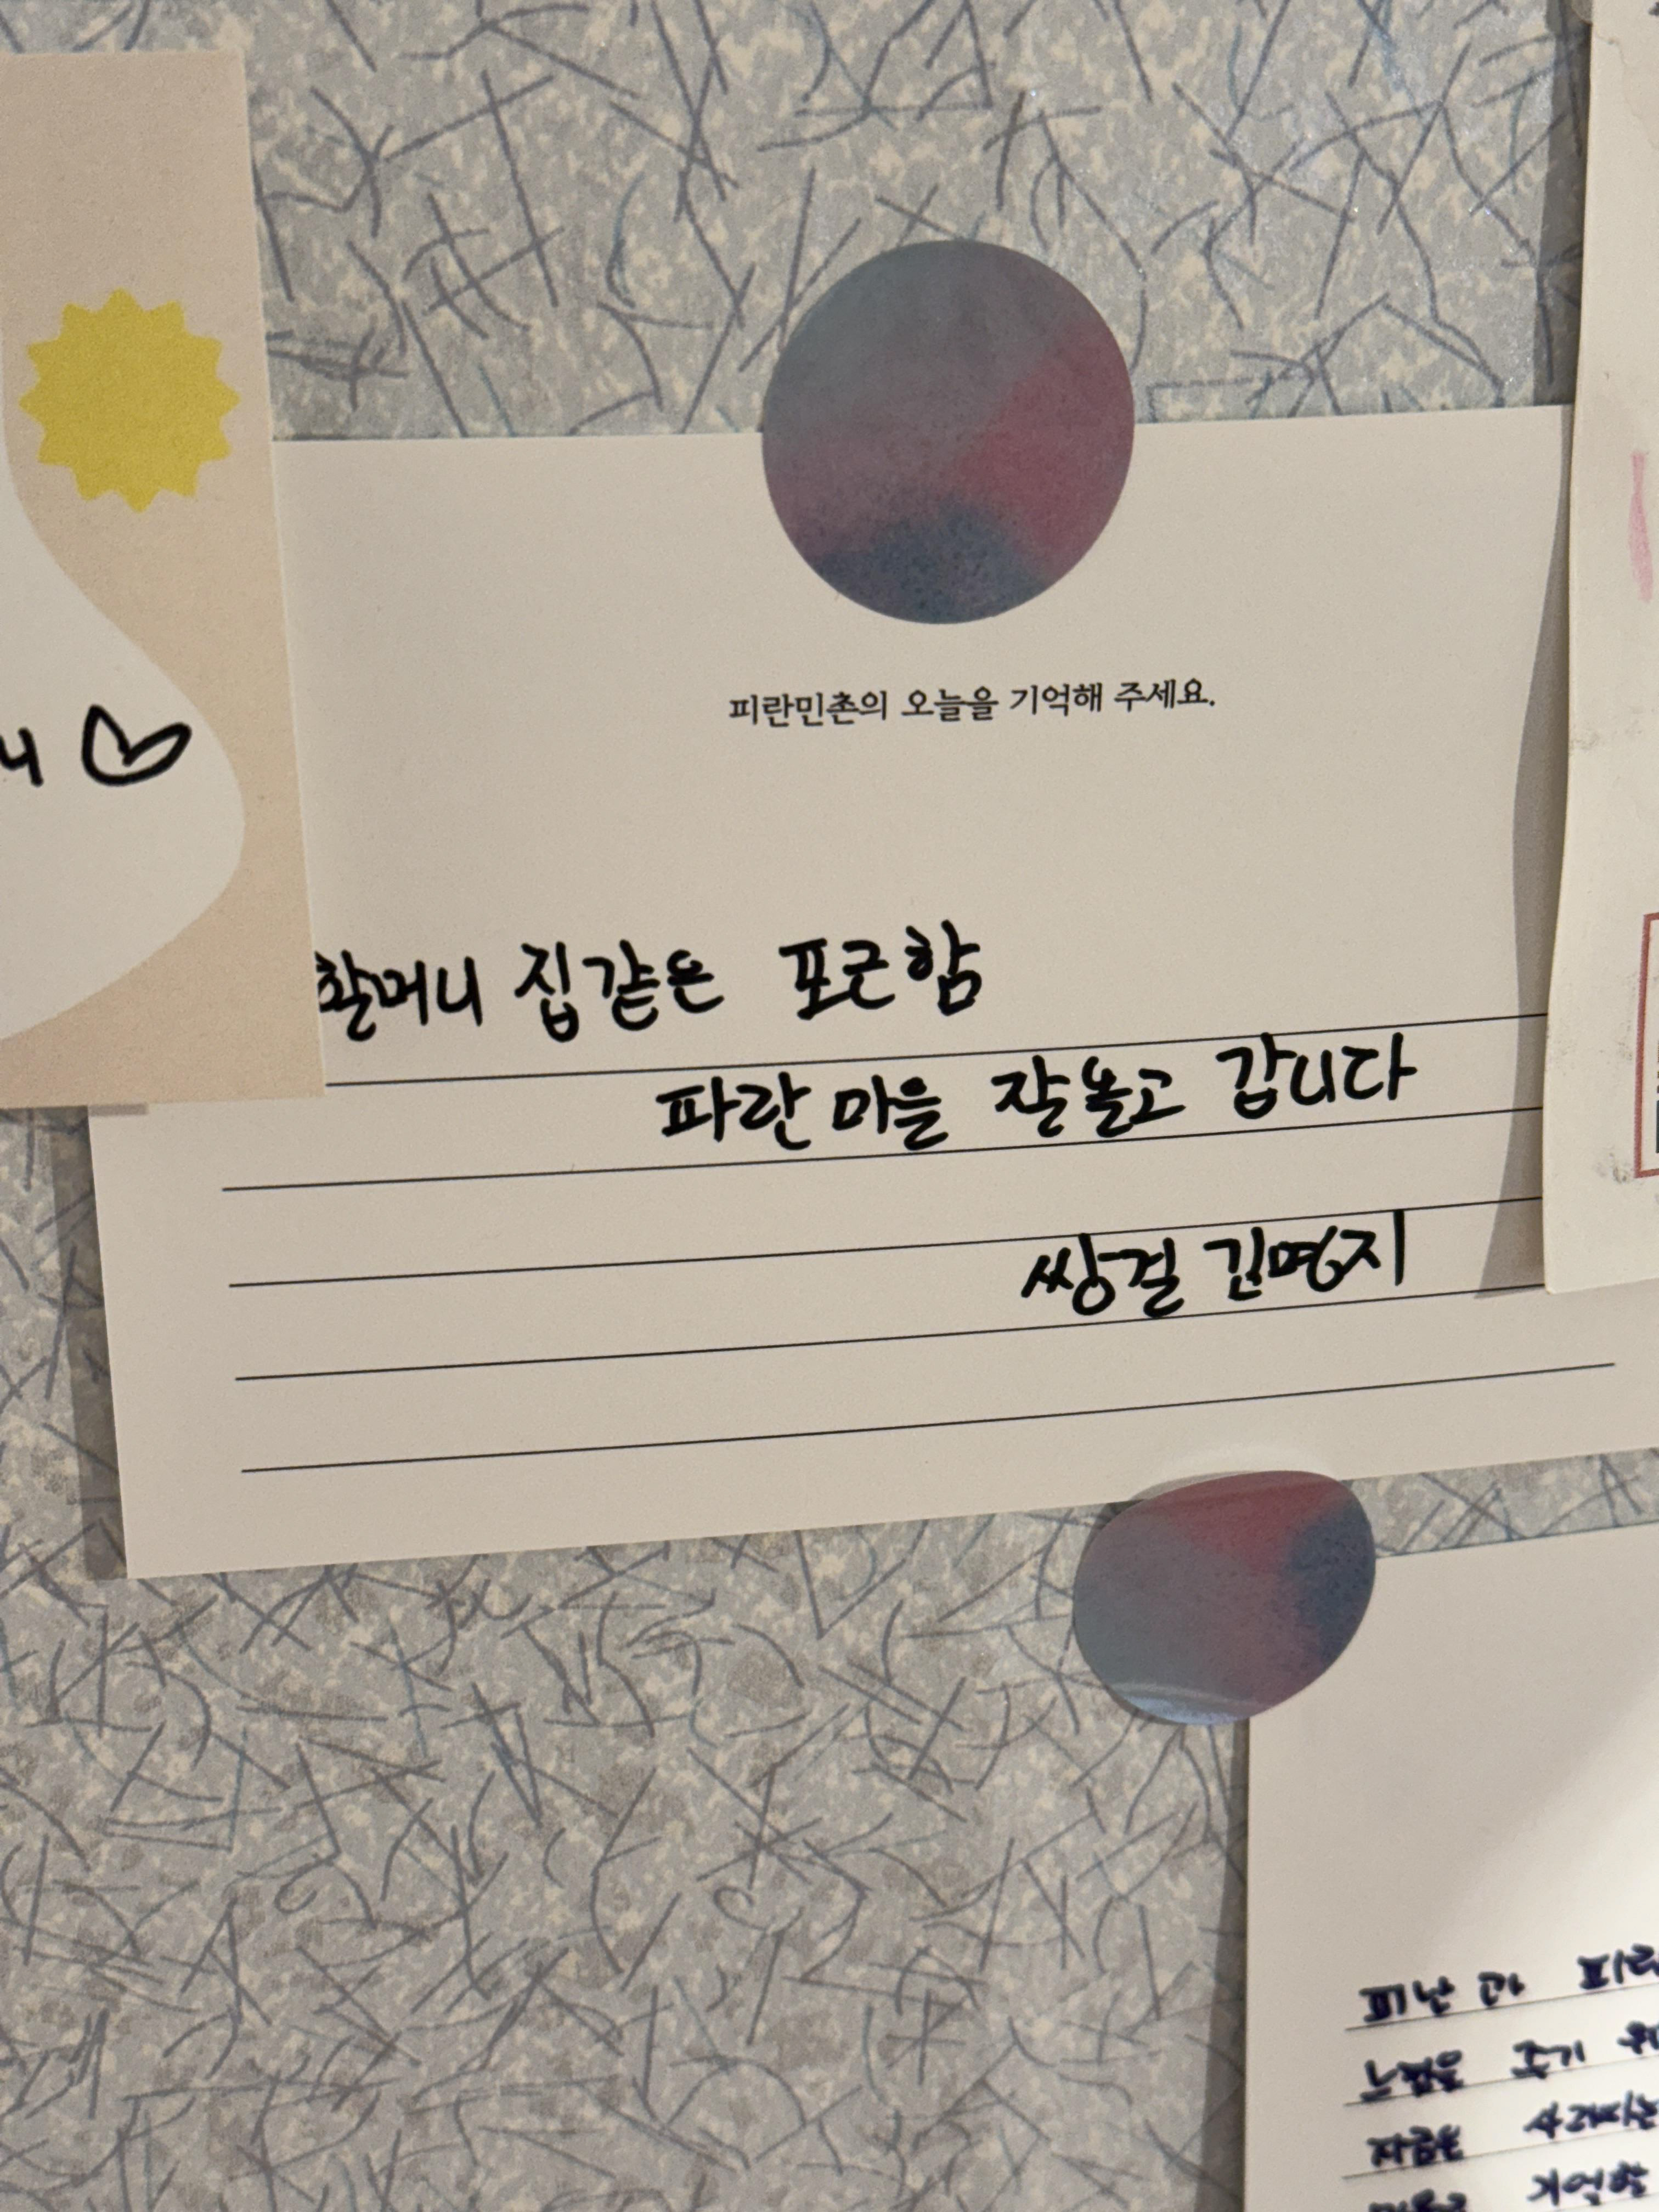 니
피란민촌의 오늘을 기억해 주세요.
할머니 집같은 포근함
파란 마을 잘 놀고 갑니다
쌍걸 김명지
피난 과 피란
느낌을 주기
자금은
기억할